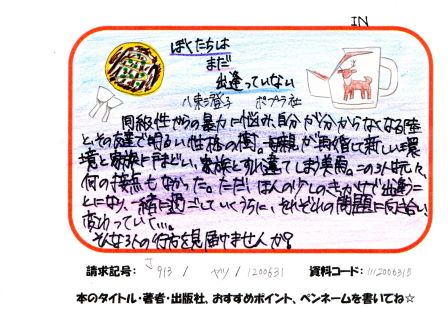 IN
ぼくたちは
まだ
出逢っていない
八束澄子 ポプラ社
同級生からの暴力に悩み、自分が分からなくなる陸
と、その友達で明るい性格の樹。母親が再婚して新しい環
境と家族に戸惑い、家族とすれ違ってしまう美雨。この3人は元々、
何の接点もなかった。ただ、ほんの少しのきっかけで出逢うこ
とになり、一緒に過ごしていくうちに、それぞれの問題に向き合い、
変わっていく…。
そんな3人の行方を見届けませんか?
請求記号: J 913 / ヤツ / 1200631 資料コード: 1112006315
本のタイトル・著者・出版社、おすすめポイント、ペンネームを書いてね☆